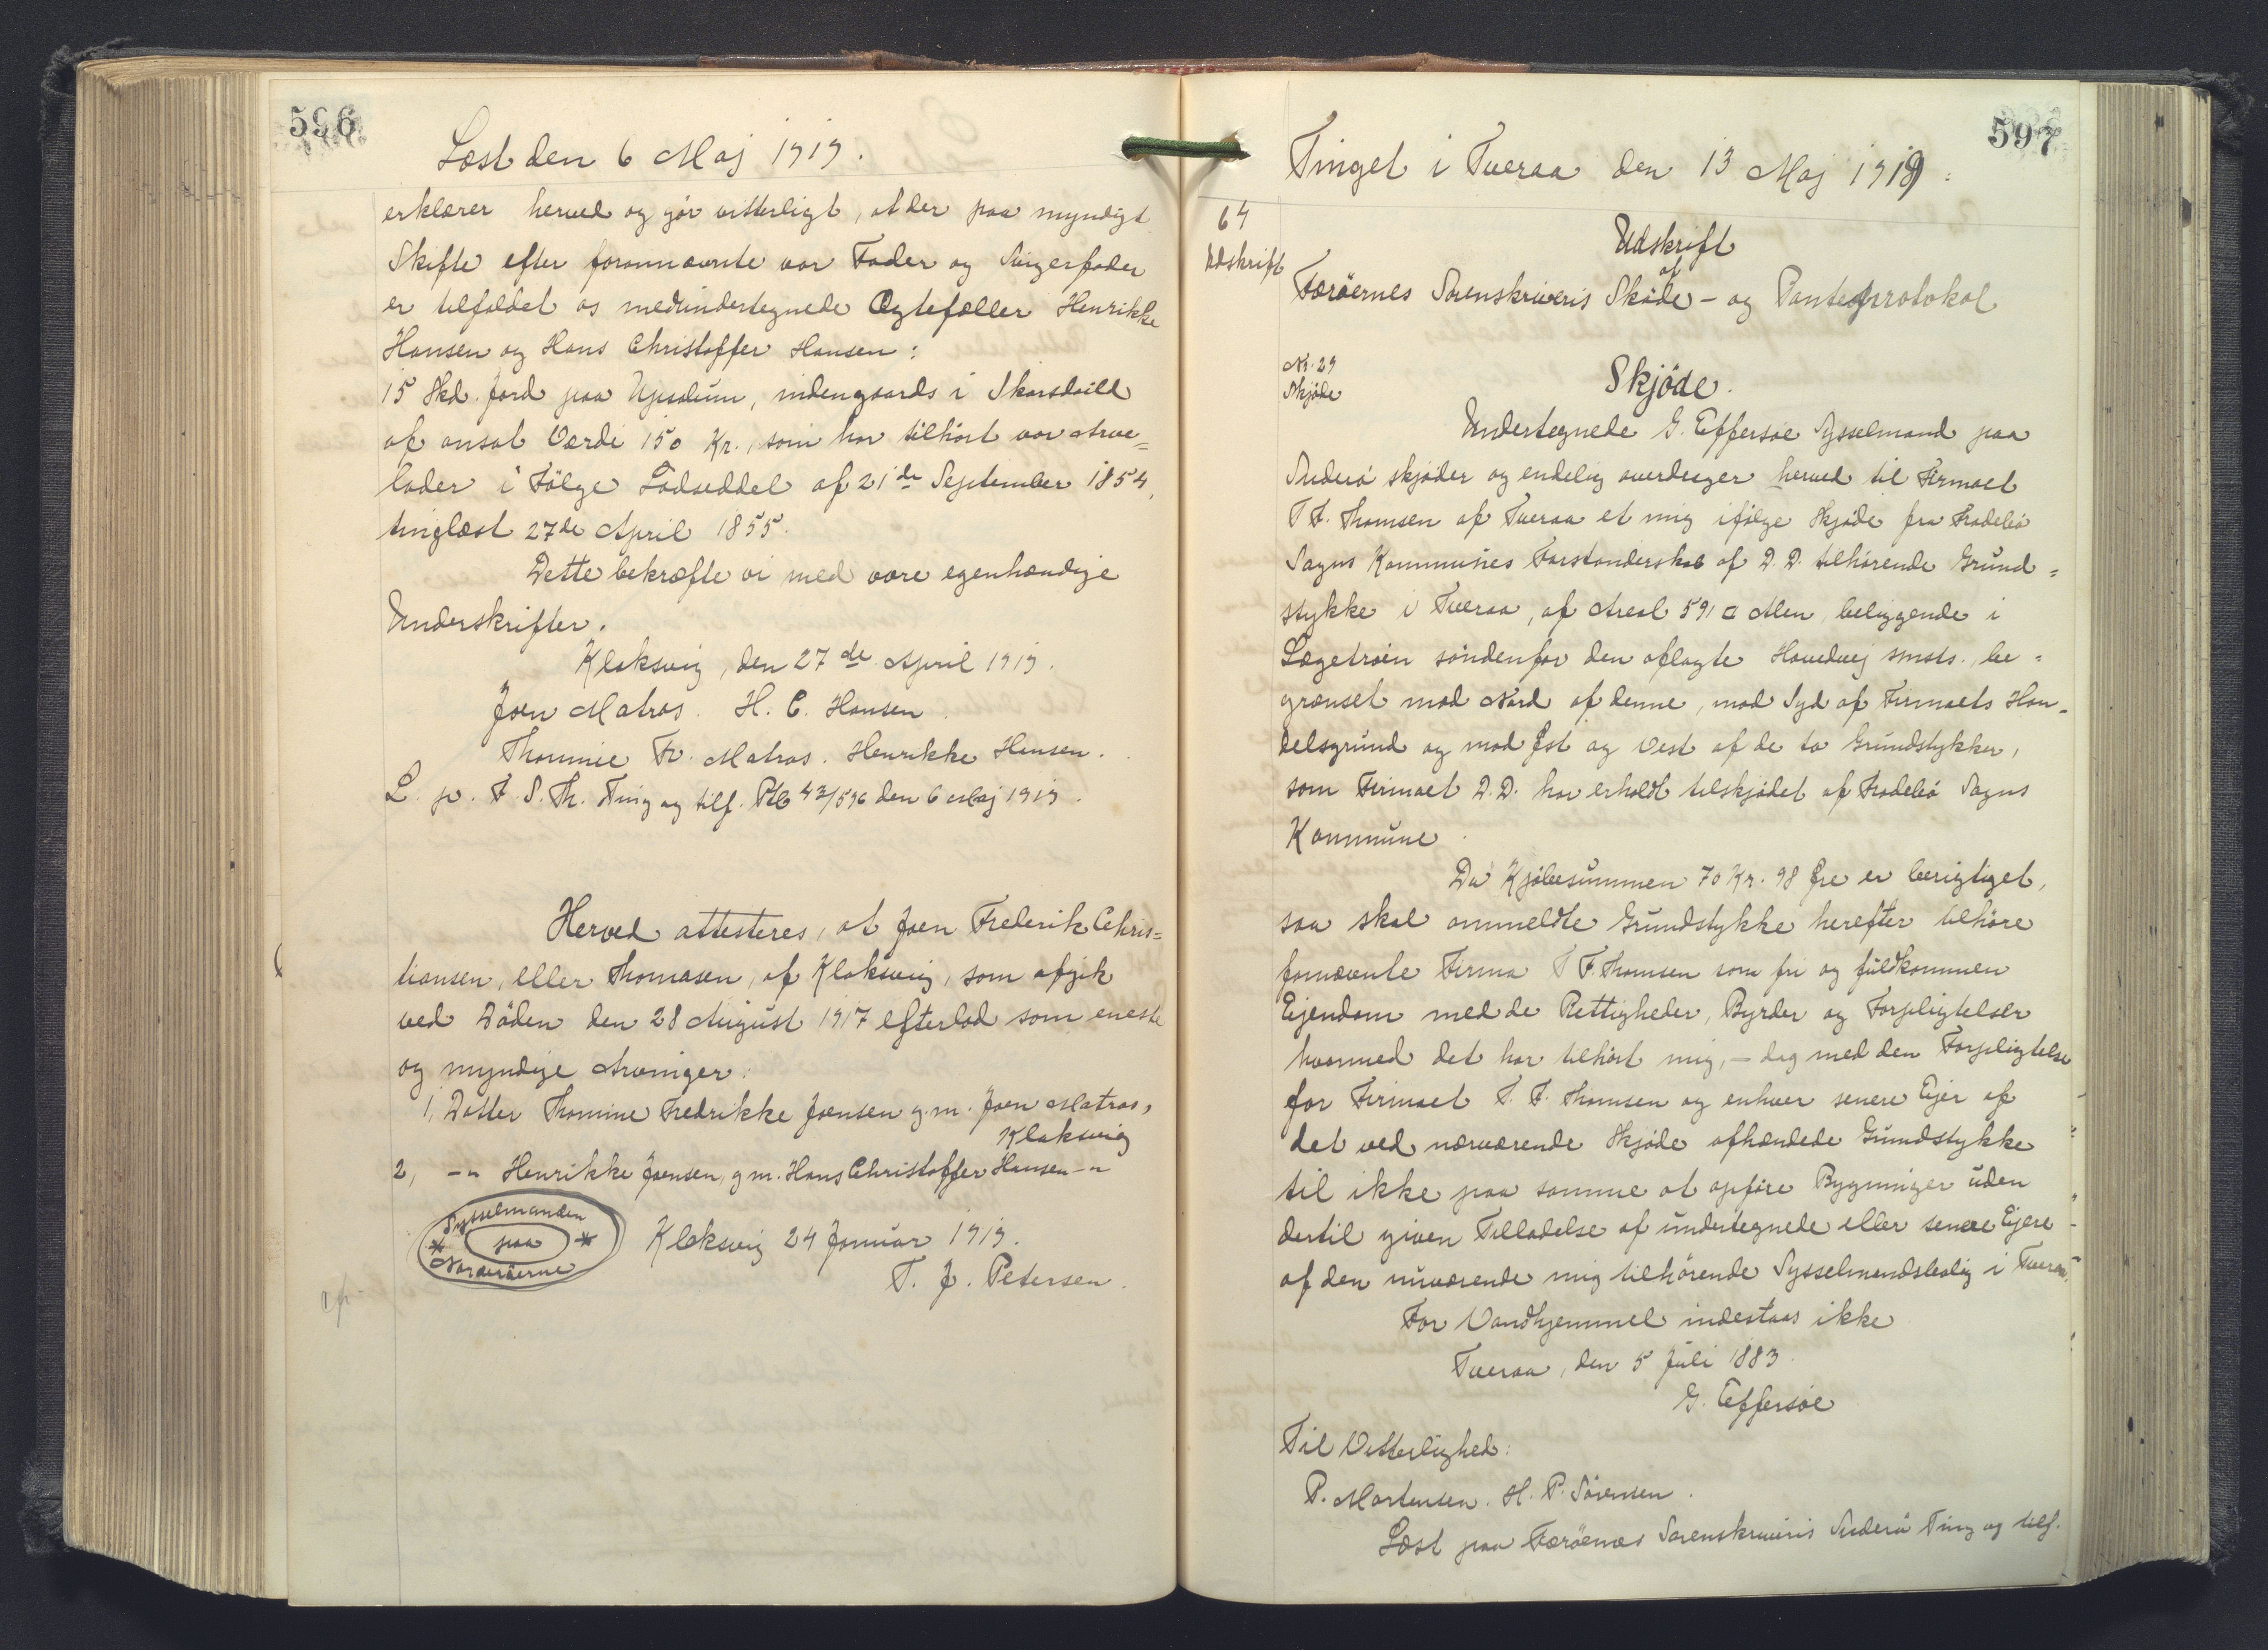 596
Læst den 6 Maj 1919.
erklærer herved og gör vitterligt, at der paa myndigt
Skifte efter forannævnte vor Fader og Svigerfader
er tilfaldet os medundertegnede Ægtefæller Henrikke
Hansen og Hans Christoffer Hansen:
15 Skd. Jord paa Upsalum, indengaards i
af ansat Værdi 150 Kr., som har tilhört vor Arve=
lader i Fölge Lodseddel af 21de September 1854,
tinglæst 27de April 1855.
Dette bekræfte vi med vore egenhændige
Underskrifter.
Klaksvig, den 27de April 1919.
Joen Matras. H. C. Hansen.
Thomine Fr. Matras. Henrikke Hansen.
L. p. F. S. Th. Ting og tilf. Ptb 43/596 den 6 Maj 1919.
Herved attesteres, at Joen Frederik Chris=
tiansen, eller Thomasen, af Klaksvig, som afgik
ved Döden den 28 August 1917 efterlod som eneste
og myndige Arvinger:
1, Datter Thomine Fredrikke Joensen g.m. Joen Matras,
Klaksvig
2, -"- Henrikke Joensen, g m. Hans Christoffer Hansen -"-
Sysselmanden
* paa *
Norderöerne
Klaksvig 24 Januar 1919.
T. J. Petersen.
597
Tinget i Tveraa den 13 Maj 1919.
64
Udskrift
Udskrift
af
Færöernes Sorenskriveris Sköde- og Panteprotokol
Nr. 29
Skjöde
Skjöde.
Undertegnede G. Effersøe Sysselmand paa
Suderö skjöder og endelig overdrager herved til Firmaet
T F. Thomsen af Tveraa et mig ifölge Skjöde fra Frodebö
Sogns Kommunes Forstanderskab af D. D. tilhörende Grund=
stykke i Tveraa, af Areal 591 □ Alen, beliggende i
Lægetröin söndenfor den aflagte Hovedvej smsts. be=
grænset mod Nord af denne, mod Syd af Firmaets Han=
delsgrund og mod Øst og Vest af de to Grundstykker,
som Firmaet D. D. har erholdt tilskjödet af Frodebö Sogns
Kommune.
Da Kjöbesummen 70 Kr. 98 Øre er berigtiget,
saa skal ommeldte Grundstykke herefter tilhöre
fornævnte Firma T F. Thomsen som fri og fuldkommen
Ejendom med de Rettigheder, Byrder og Forpligtelser
hvormed det har tilhört mig, - dog med den Forpligtelse
for Firmaet T. F. Thomsen og enhver senere Ejer af
det ved nærværende Skjöde afhændede Grundstykke
til ikke paa samme at opföre Bygninger uden
dertil given Tilladelse af undertegnede eller senere Ejere
af den nuværende mig tilhörende Sysselmandsbolig i Tveraa.
For Vandhjemmel indestaas ikke
Tveraa, den 5 Juli 1883.
G. Effersøe
Til Vitterlighed:
P. Mortensen. H. P. Sörensen.
Læst paa Færöernes Sorenskriveris Suderö Ting og tilf.